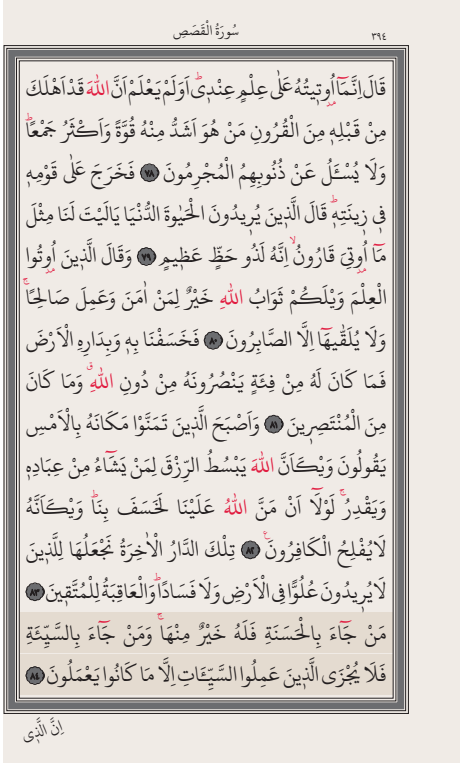 سُورَةُ الْقَصَصِ
٣٩٤
قَالَ اِنَّمَٓا اُو۫ت۪يتُهُ عَلٰى عِلْمٍ عِنْد۪يۜ اَوَلَمْ يَعْلَمْ اَنَّ اللّٰهَ قَدْ اَهْلَكَ
مِنْ قَبْلِه۪ مِنَ الْقُرُونِ مَنْ هُوَ اَشَدُّ مِنْهُ قُوَّةً وَاَكْثَرُ جَمْعًاۜ
وَلَا يُسْـَٔلُ عَنْ ذُنُوبِهِمُ الْمُجْرِمُونَ ﴿٧٨﴾ فَخَرَجَ عَلٰى قَوْمِه۪
ف۪ي ز۪ينَتِه۪ۜ قَالَ الَّذ۪ينَ يُر۪يدُونَ الْحَيٰوةَ الدُّنْيَا يَالَيْتَ لَنَا مِثْلَ
مَٓا اُو۫تِيَ قَارُونُۙ اِنَّهُ لَذُو حَظٍّ عَظ۪يمٍ ﴿٧٩﴾ وَقَالَ الَّذ۪ينَ اُو۫تُوا
الْعِلْمَ وَيْلَكُمْ ثَوَابُ اللّٰهِ خَيْرٌ لِمَنْ اٰمَنَ وَعَمِلَ صَالِحًاۚ
وَلَا يُلَقّٰيهَٓا اِلَّا الصَّابِرُونَ ﴿٨٠﴾ فَخَسَفْنَا بِه۪ وَبِدَارِهِ الْاَرْضَ
فَمَا كَانَ لَهُ مِنْ فِئَةٍ يَنْصُرُونَهُ مِنْ دُونِ اللّٰهِۗ وَمَا كَانَ
مِنَ الْمُنْتَصِر۪ينَ ﴿٨١﴾ وَاَصْبَحَ الَّذ۪ينَ تَمَنَّوْا مَكَانَهُ بِالْاَمْسِ
يَقُولُونَ وَيْكَاَنَّ اللّٰهَ يَبْسُطُ الرِّزْقَ لِمَنْ يَشَٓاءُ مِنْ عِبَادِه۪
وَيَقْدِرُۚ لَوْلَٓا اَنْ مَنَّ اللّٰهُ عَلَيْنَا لَخَسَفَ بِنَاۜ وَيْكَاَنَّهُ
لَا يُفْلِحُ الْكَافِرُونَ۟ ﴿٨٢﴾ تِلْكَ الدَّارُ الْاٰخِرَةُ نَجْعَلُهَا لِلَّذ۪ينَ
لَا يُر۪يدُونَ عُلُوًّا فِي الْاَرْضِ وَلَا فَسَادًاۜ وَالْعَاقِبَةُ لِلْمُتَّق۪ينَ ﴿٨٣﴾
مَنْ جَٓاءَ بِالْحَسَنَةِ فَلَهُ خَيْرٌ مِنْهَاۚ وَمَنْ جَٓاءَ بِالسَّيِّئَةِ
فَلَا يُجْزَى الَّذ۪ينَ عَمِلُوا السَّيِّـَٔاتِ اِلَّا مَا كَانُوا يَعْمَلُونَ ﴿٨٤﴾
اِنَّ الَّذ۪ي